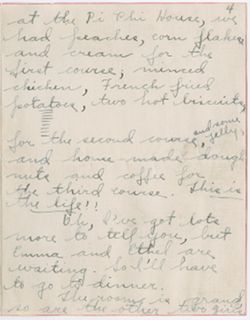 4
at the Pi Chi House, we
had peaches, corn flakes
and cream for the
first course; minced
chicken, French fried
potatoes, two hot biscuits
and some
jelly
for the second course,
and home made dough
nuts and coffee for
the third course. This is
the life!!
Oh, I've got lots
more to tell you, but
Emma and Ethel are
waiting. So I'll have
to go to dinner.
The room is grand
so are the other two girls